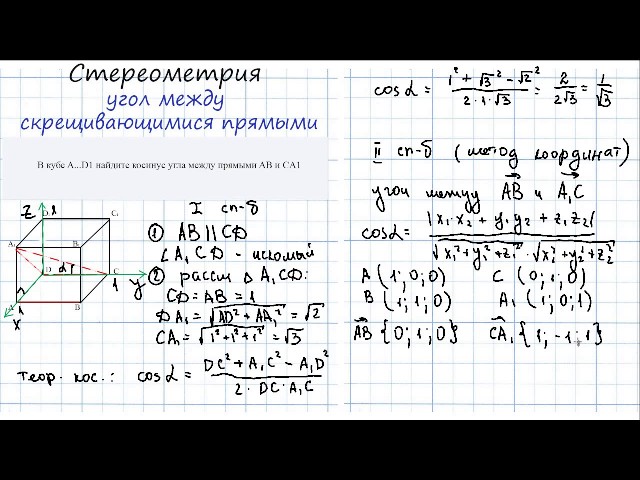 Стереометрия
угол между
скрещивающимися прямыми
В кубе A...D1 найдите косинус угла между прямыми AB и CA1
Z 1 D₁ C₁
A₁ B₁
D α C
1 y
A B
1
x
I сп-б
① AB || CD
∠ A₁CD - искомый
② рассм △ A₁CD:
CD = AB = 1
DA₁ = √AD² + AA₁² = √2
CA₁ = √1² + 1² + 1² = √3
теор. кос.: cos α = DC² + A₁C² - A₁D² / 2 · DC · A₁C
cos α = 1² + √3² - √2² / 2 · 1 · √3 = 2 / 2√3 = 1 / √3
II сп-б (метод координат)
угол между AB и A₁C
cos α = |x₁·x₂ + y₁y₂ + z₁z₂| / √x₁² + y₁² + z₁² · √x₂² + y₂² + z₂²
A (1; 0; 0) C (0; 1; 0)
B (1; 1; 0) A₁ (1; 0; 1)
AB {0; 1; 0} CA₁ {1; -1; 1}